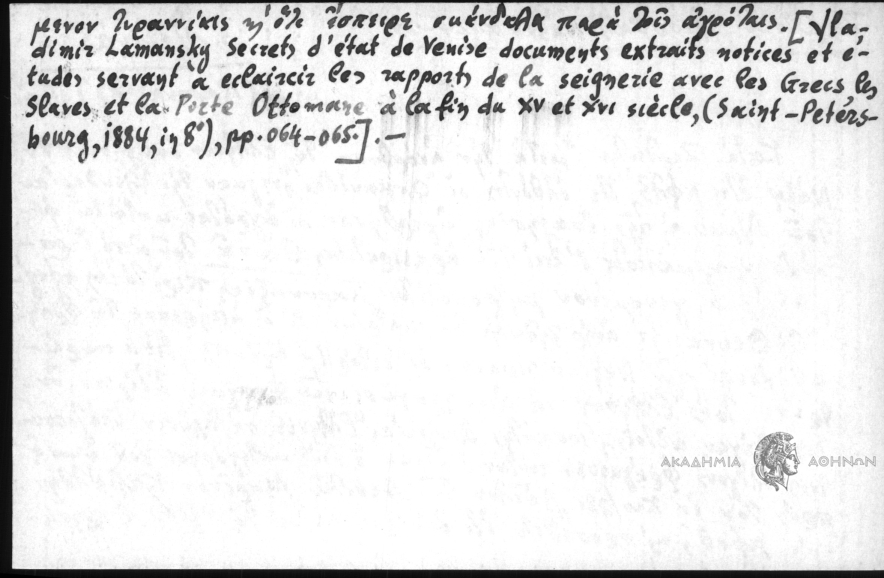 μενον τυραννίας ἢ ὅτι ἔσπειρε σκάνδαλα παρὰ τοῖς ἀγρόταις. [Vla-
dimir Lamansky Secrets d'état de Venise documents extraits notices et é-
tudes servant à eclaircir les rapports de la seignerie avec les Grecs les
Slaves et la Porte Ottomane à la fin du XV et XVI siècle, (Saint-Péters-
bourg, 1884, in 8°), pp. 064-065.]. —
ΑΚΑΔΗΜΙΑ ΑΘΗΝΩΝ